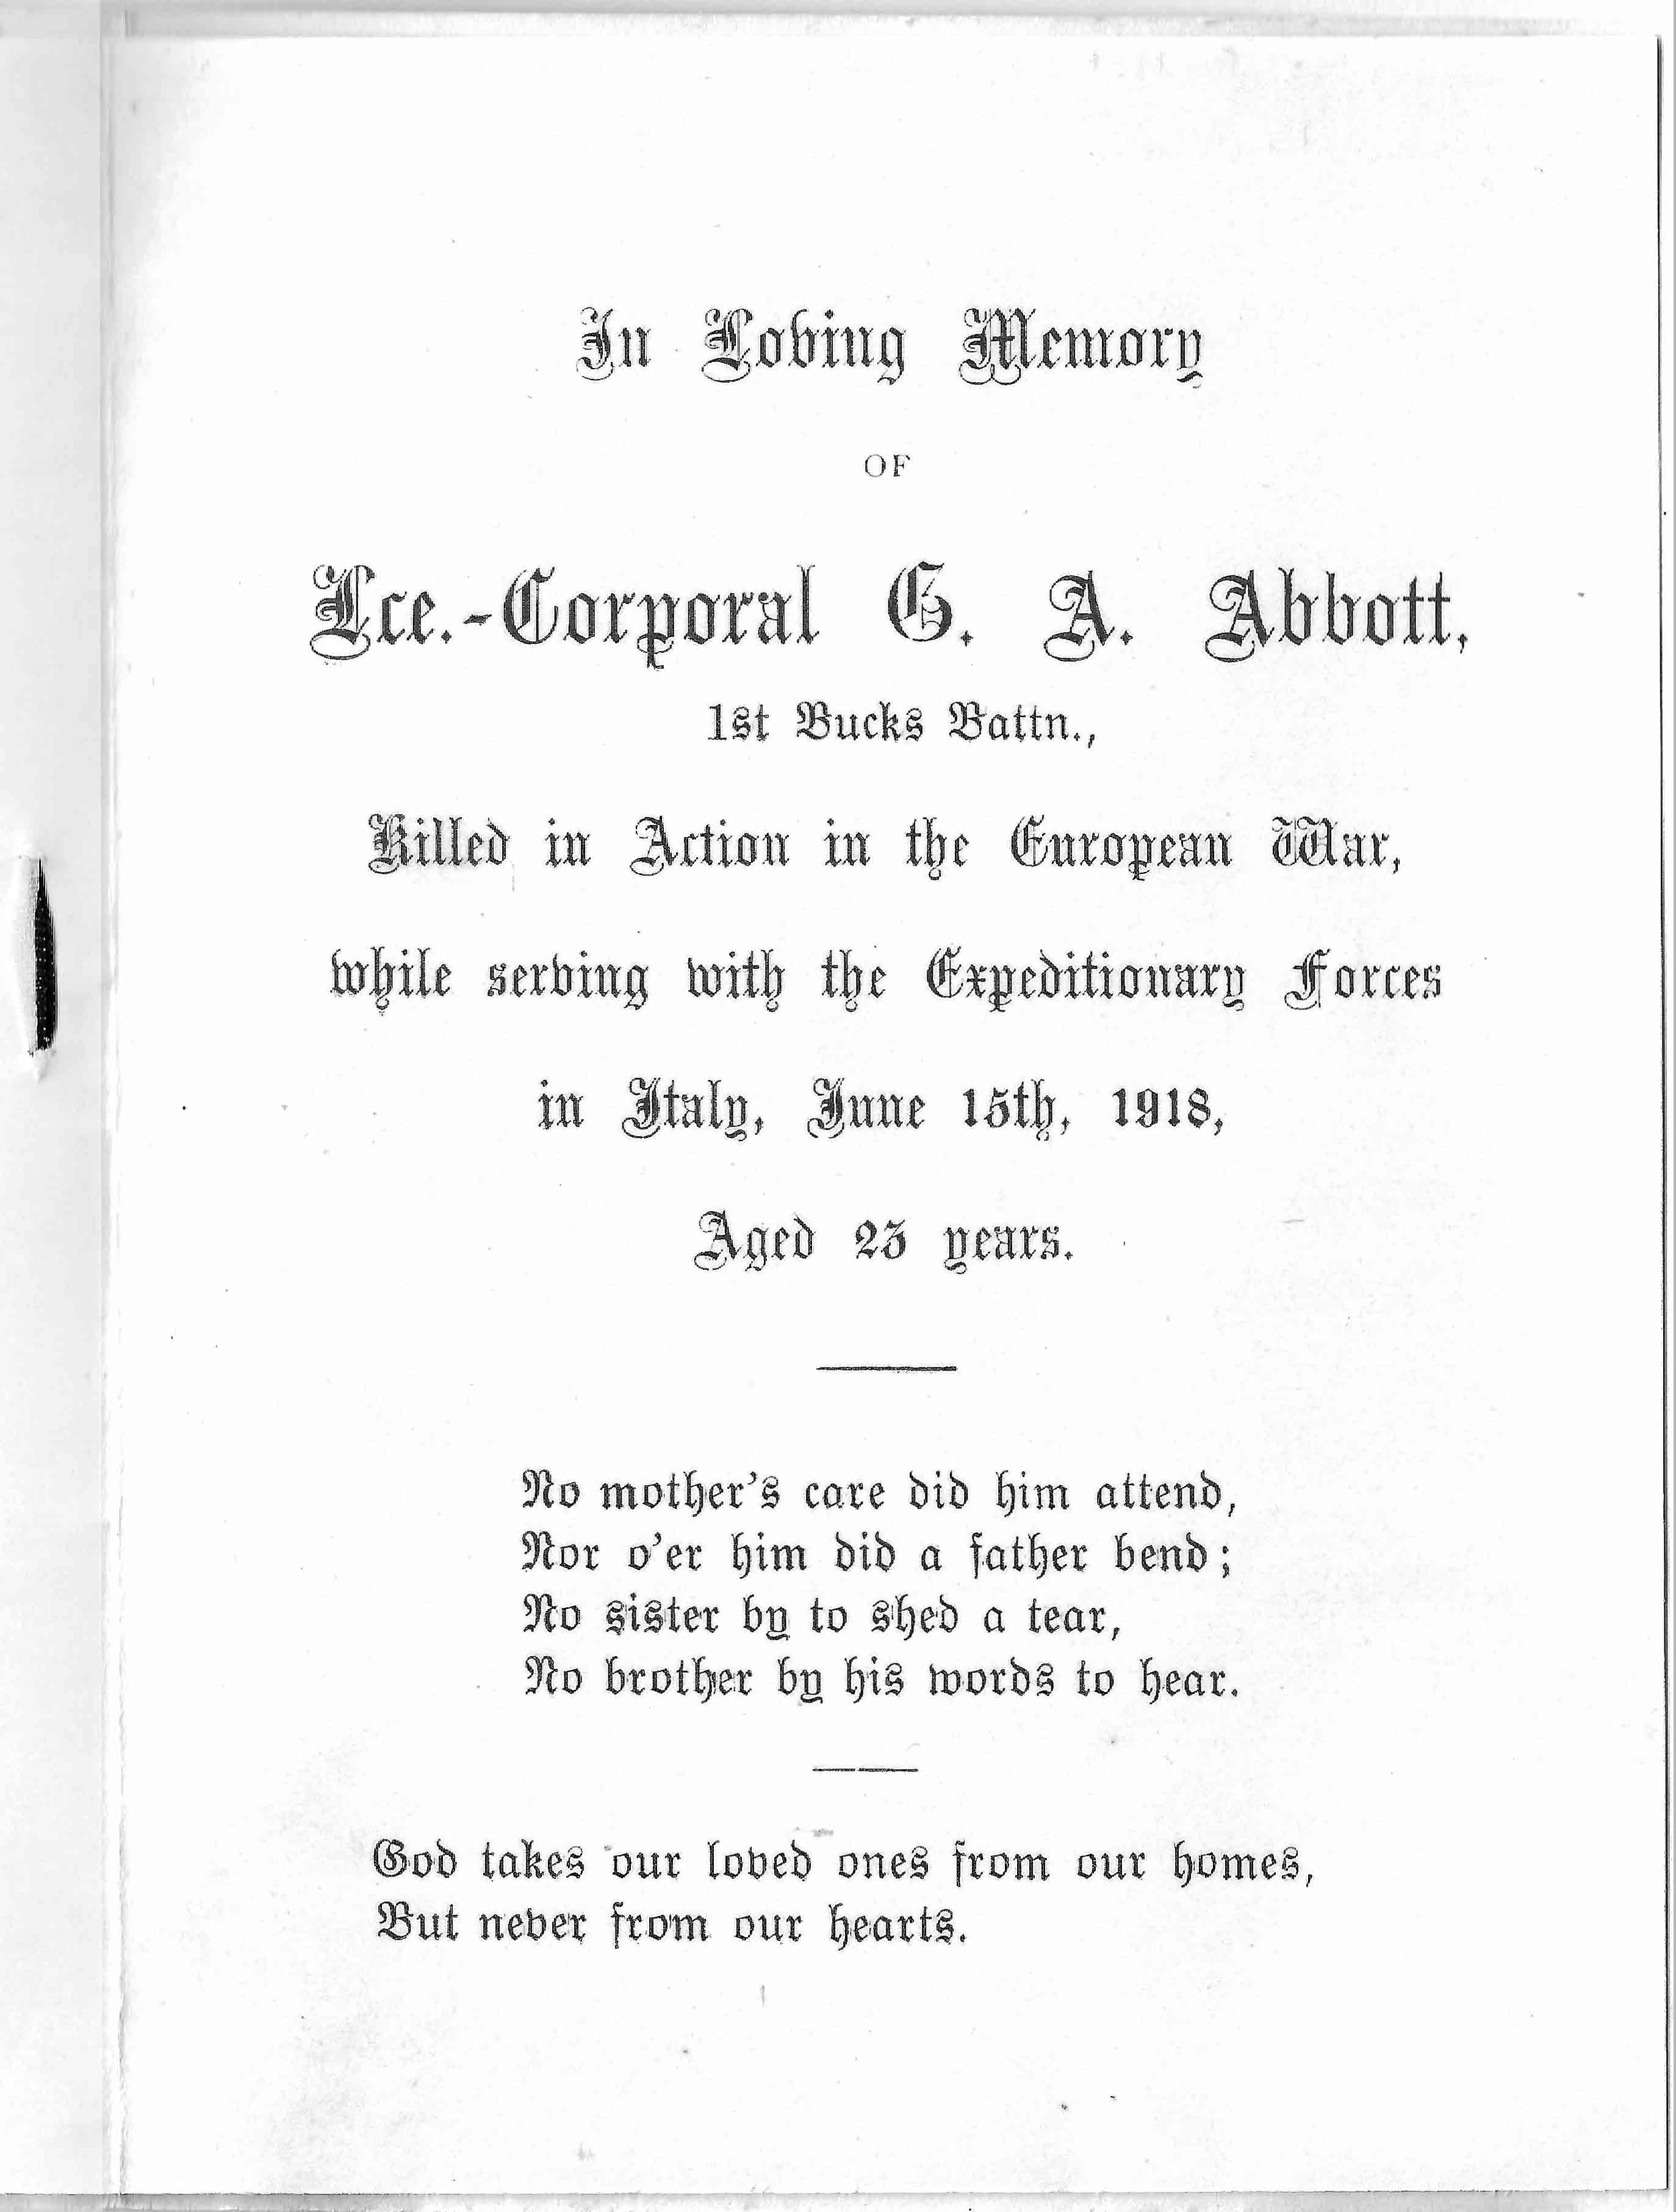 In Loving Memory
OF
Lce.-Corporal G. A. Abbott,
1st Bucks Battn.,
Killed in Action in the European War,
while serving with the Expeditionary Forces
in Italy, June 15th, 1918,
Aged 23 years.
No mother's care did him attend,
Nor o'er him did a father bend;
No sister by to shed a tear,
No brother by his words to hear.
God takes our loved ones from our homes,
But never from our hearts.